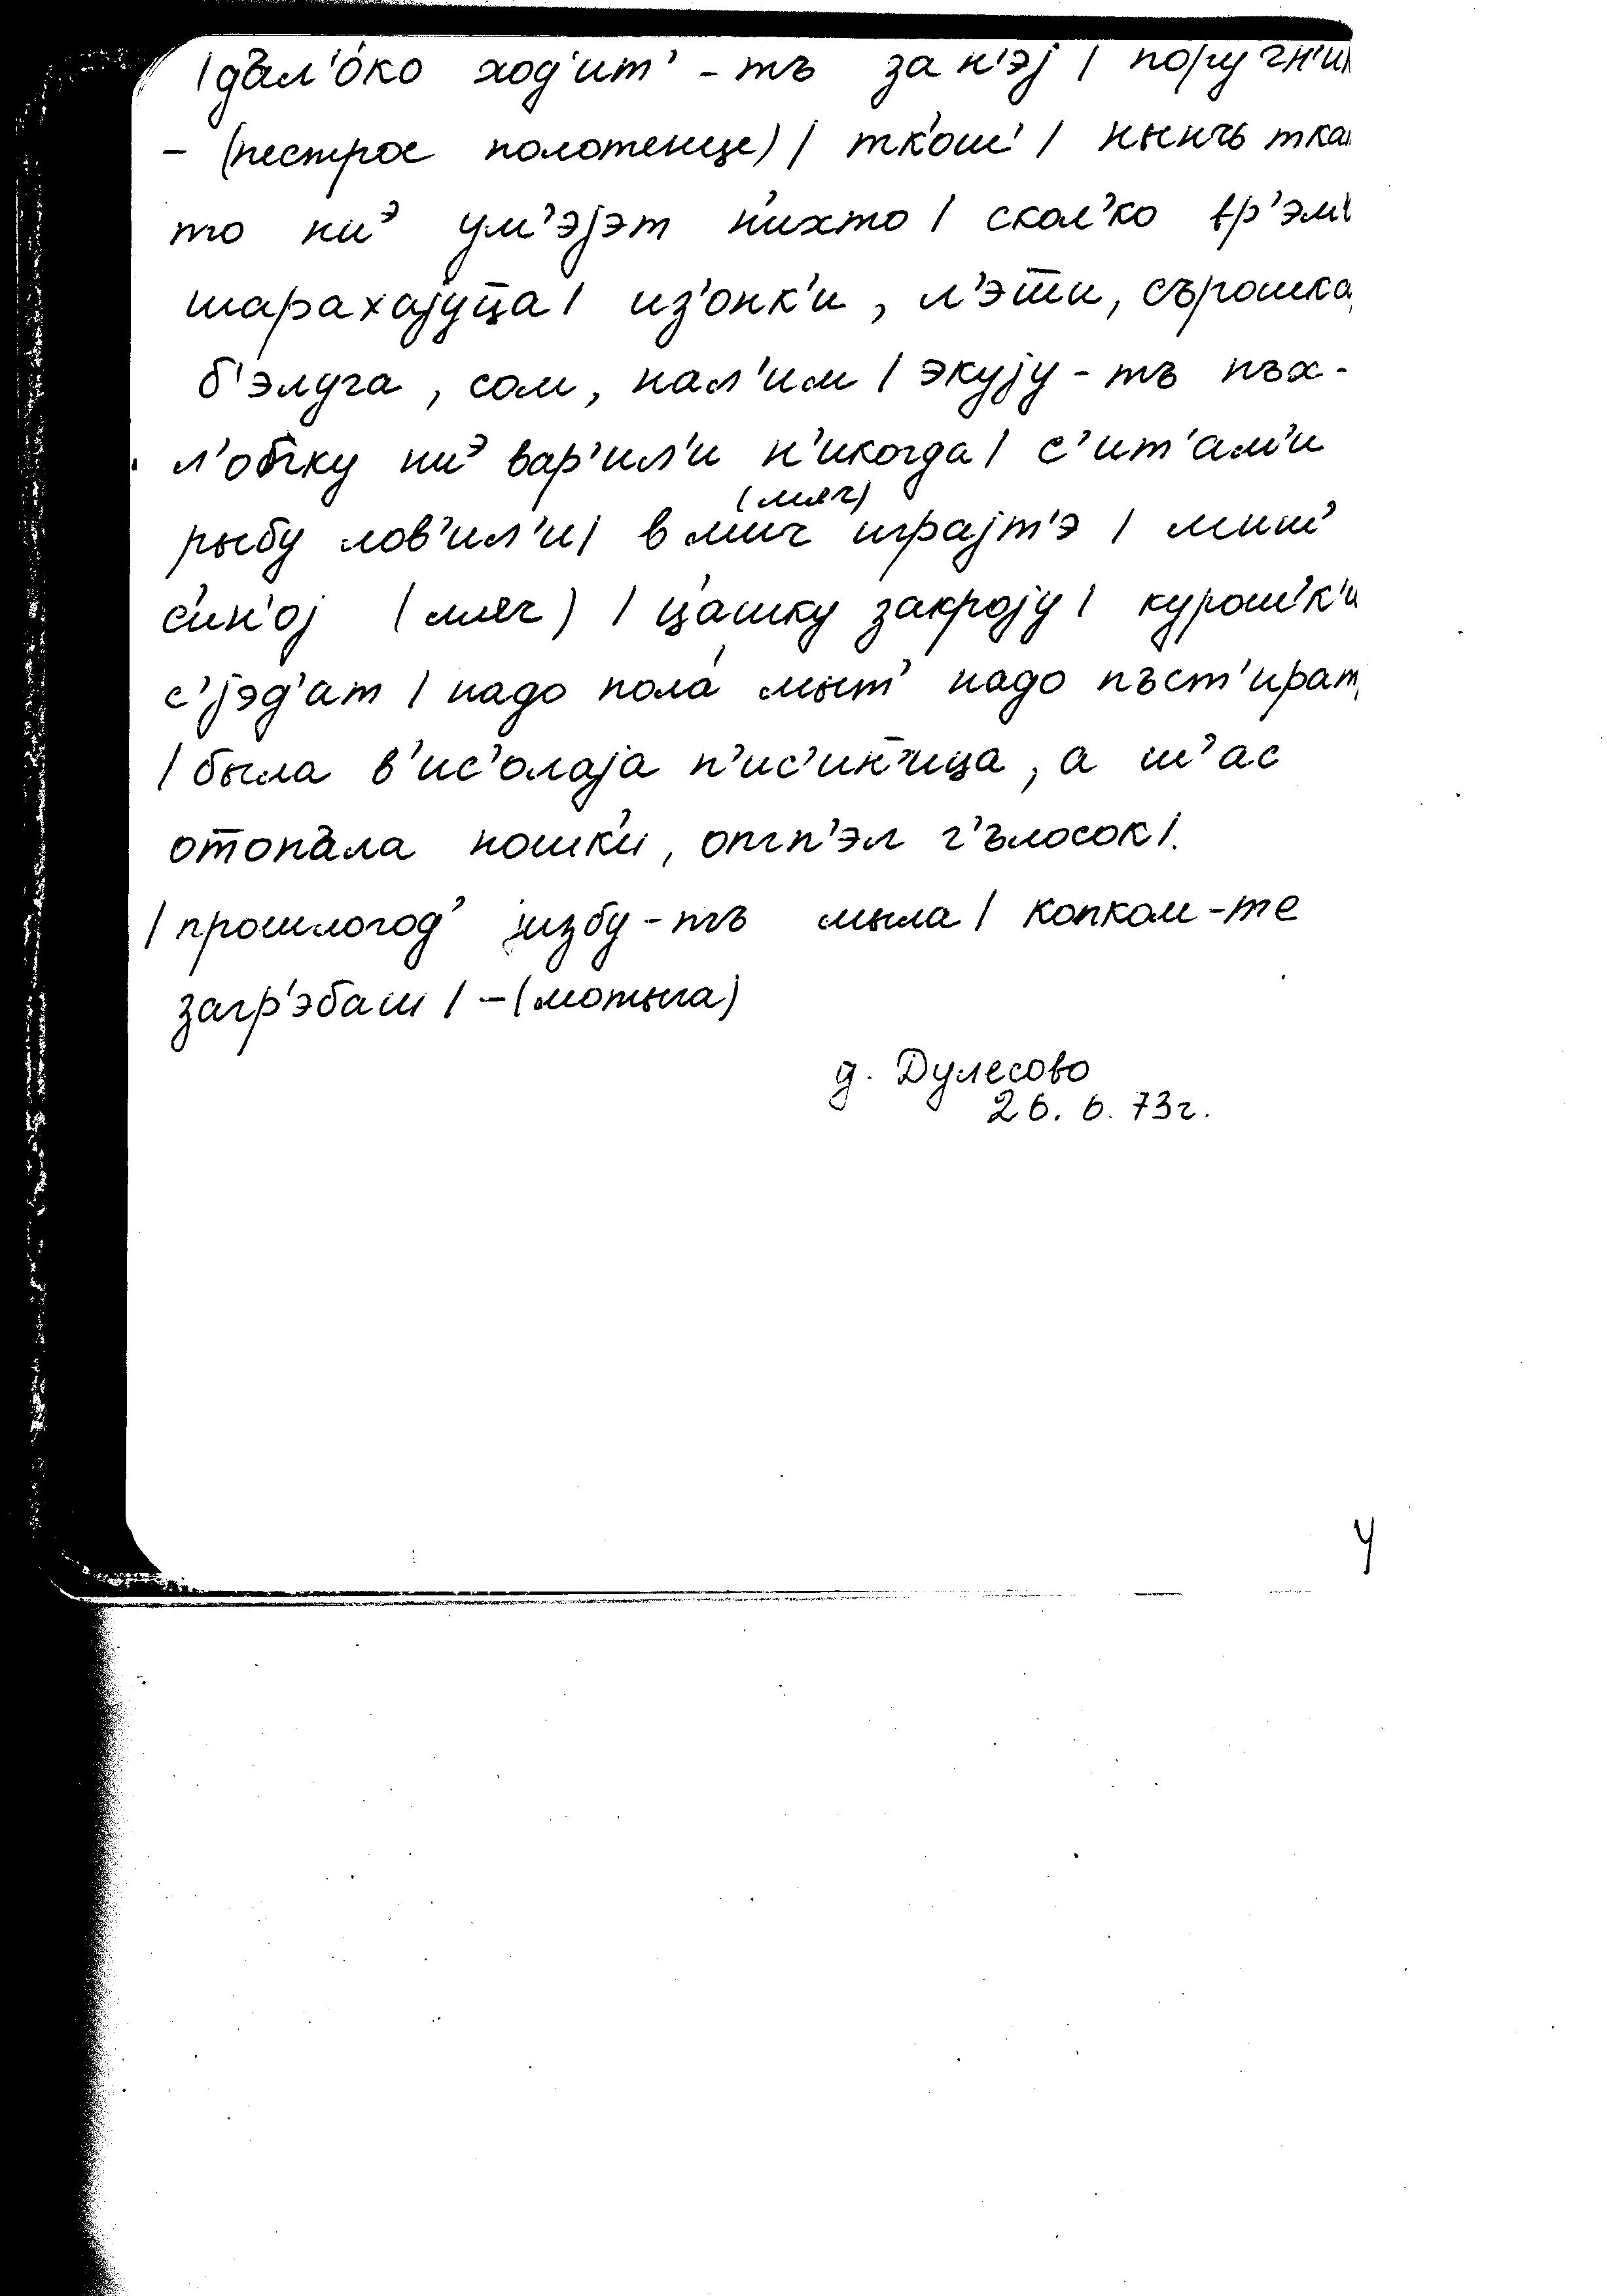 /дал'о́ко ход'ит' - тъ за н'эj / поручн'и
- (пестрое полотенце) / тк'ош' / нынчъ тка
то ниэ ум'эjэт н'ихто / скол'ко вр'эм'
шарахаjуц̄а / из'онк'и, л'эш̄и, сърошка,
б'элуга, сом, нал'им / экуjу - тъ пъх-
л'обку ниэ вар'ил'и н'икогда / с'ит'ам'и
(мяч)
рыбу лов'ил'и / в мич играjт'э / миш'
с'ин'оj (мяч) / ц'ашку закроjу / курош'к'и
с'jэд'ат / надо пола́ мыт' надо пъст'ират
/ была в'ис'олаjа п'ис'ин̄ица, а ш'ас
отопа́ла ношк'и, отп'эл г'ълосок /.
/ прошлогод' jизбу - тъ мыла / копком - те
загр'эбаш / - (мотыга)
д. Дулесово
26. 6. 73г.
4